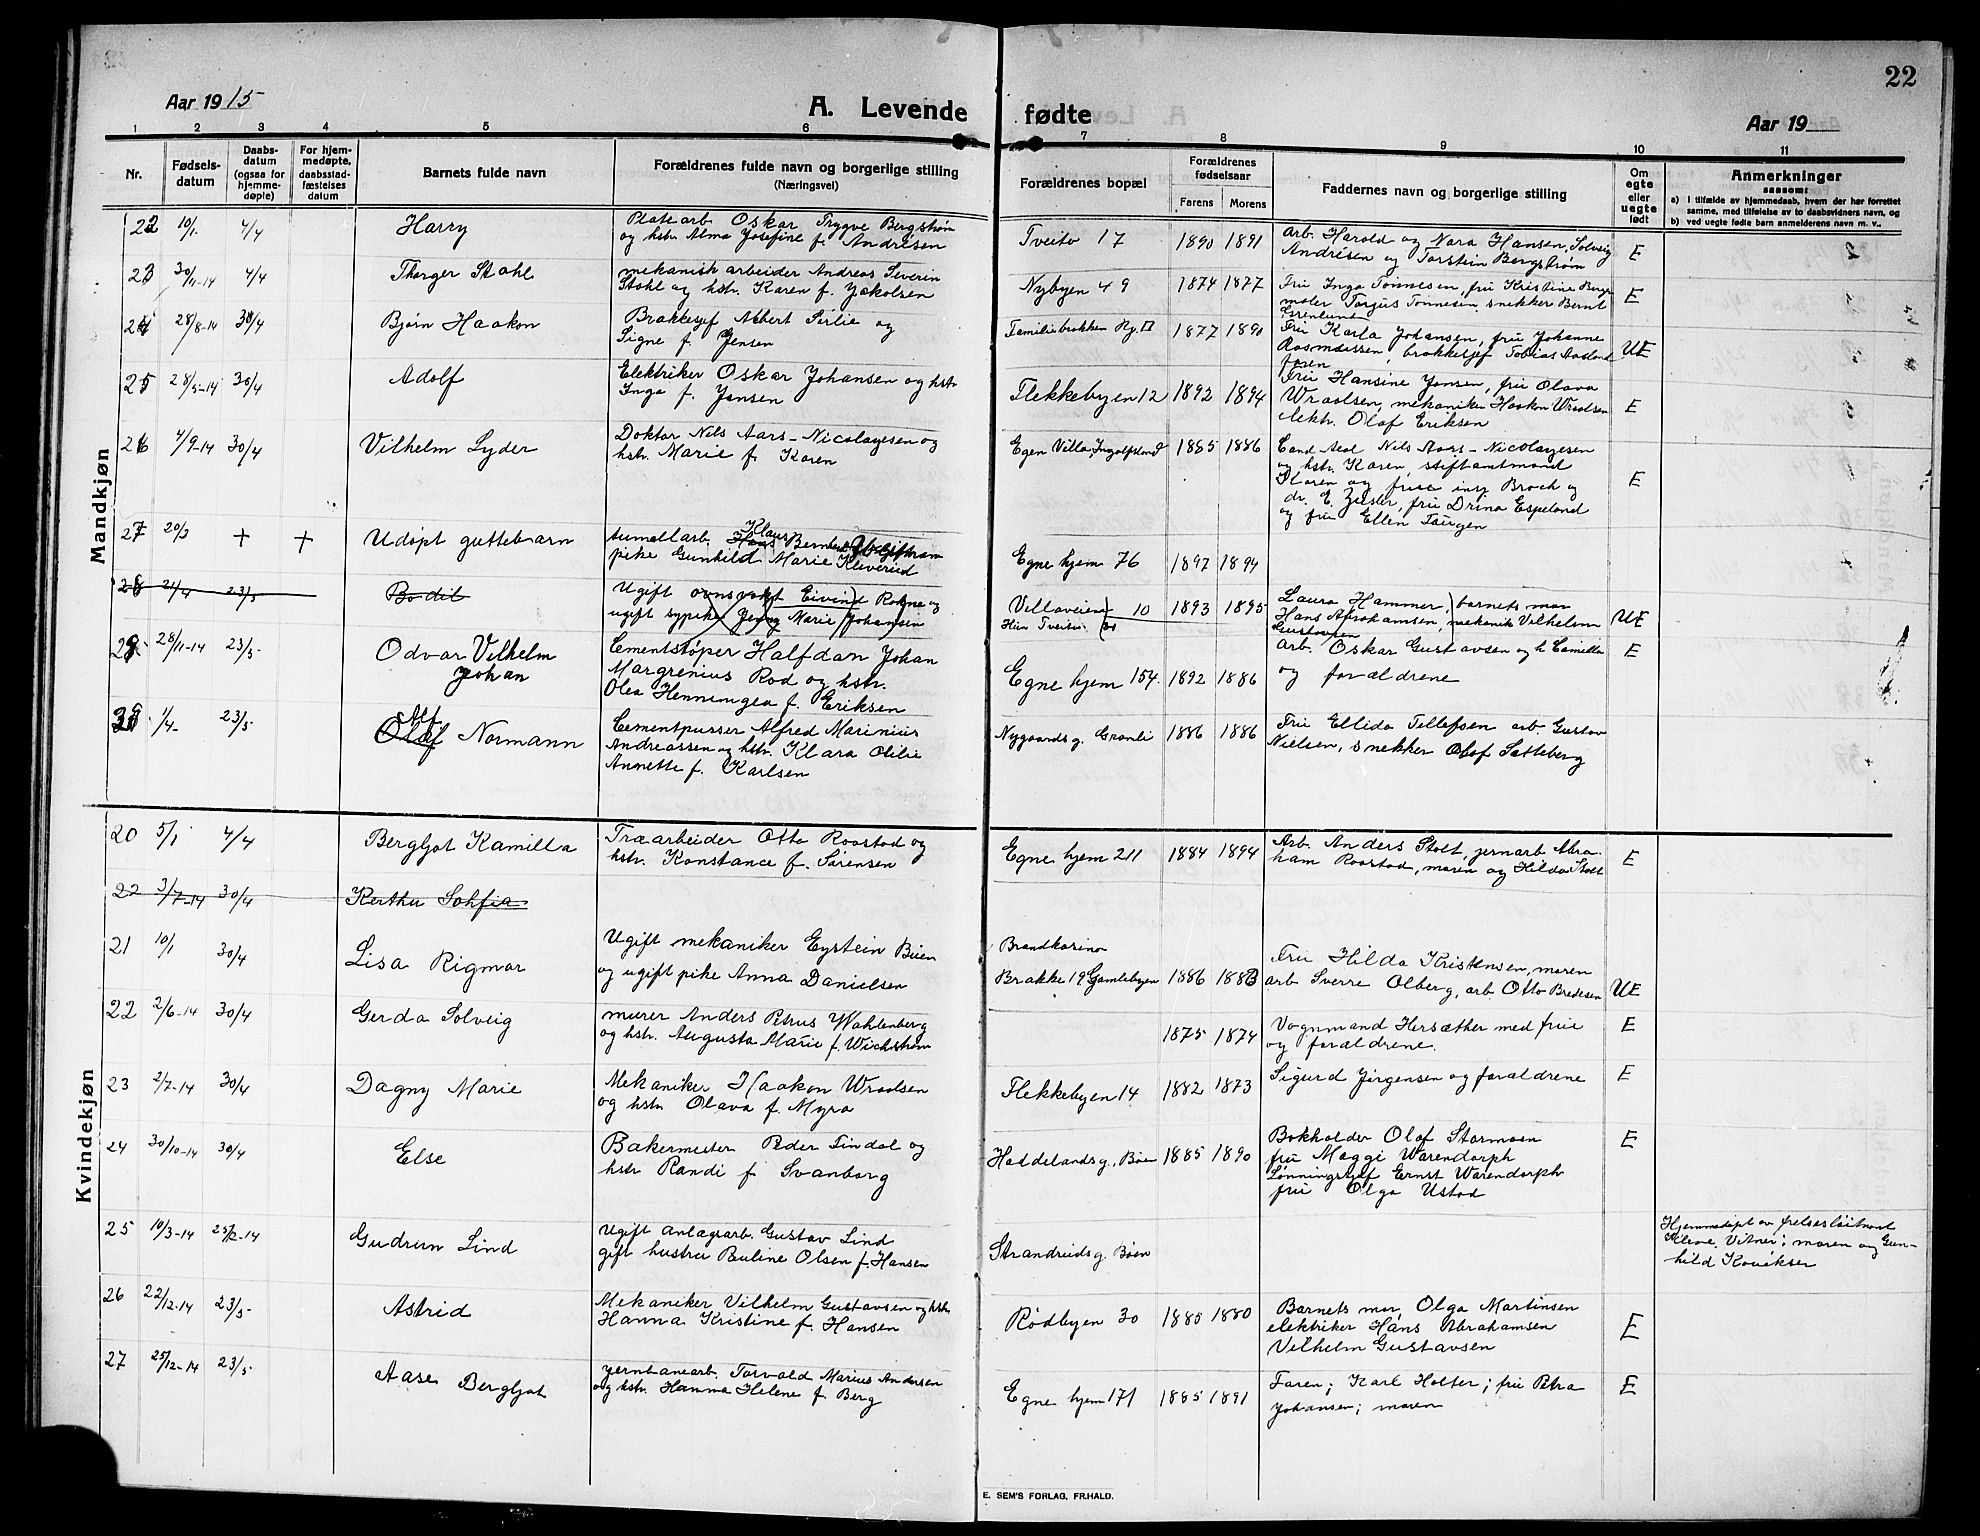 22
Aar 1915
A. Levende fødte
Aar 19
1 2 3 4 5 6 7 8 9 10 11
Nr.
Fødsels-
datum
Daabs-
datum
(ogsaa for
hjemme-
døpte)
For hjem-
medøpte,
daabsstad-
fæstelses
datum
Barnets fulde navn
Forældrenes fulde navn og borgerlige stilling
(Næringsvei)
Forældrenes bopæl
Forældrenes
fødselsaar
Farens Morens
Faddernes navn og borgerlige stilling
Om
egte
eller
uegte
født
Anmerkninger
saasom:
a) i tilfælde av hjemmedaab, hvem der har forrettet
samme, med tilføielse av to daabsvidners navn, og
b) ved uegte fødte barn anmelderens navn m. v..
Mandkjøn
22 10/1 4/4 Harry
Platearb. Oskar Trygve Bergstrøm
og hstr. Alma Josefine f. Andrésen
Tveito 17 1890 1891
Arb. Harold og Nara Hansen, Solveig
Andrésen og Torstein Bergstrøm
E
23 30/11-14 4/4 Thorger Stahl
mekanisk arbeider Andreas Severin
Stahl og hstr. Karen f. Jakobsen
Nybyen 49 1874 1877
Fru Inga Tønnesen, fru Kristine Berge
maler Torjus Tønnesen, snekker Bernt
Grønlund
E
24 28/8-14 30/4 Bjørn Haakon
Brakkesjef Albert Sirlie og
Signe f. Jensen
Familiebrakken Rj. II 1877 1890
Fru Karla Johansen, fru Johanne
Rasmussen, brakkesjef Tobias Aasland
faren
UE
25 28/5-14 30/4 Adolf
Elektriker Oskar Johansen og hstr
Inga f. Jensen
Flekkebyen 12 1892 1894
Fru Hansine Jensen, fru Olava
Wraalsen, mekaniker Haakon Wraalsen
elektr. Olaf Eriksen
E
26 4/9-14 30/4 Vilhelm Lyder
Doktor Nils Aars-Nicolaysen og
hstr. Marie f. Koren
Egen Villa, Ingolfsland 1885 1886
Cand real Nils Aars-Nicolaysen
og hstr. Karen, stiftamtmand
Floren og frue ing. Broch og
dr. E. Zeisler, fru Drina Espeland
og fru Ellen Taugen
E
27 20/3 + + Udøpt guttebarn
tumellarb. Klaus Hans Bernhard
pike Gunhild Marie Kleverud
Egne hjem 76 1897 1894
28 21/4 23/5 Bodil
Ugift ovnsvakt Eivind Rokne og
ugift sypike Jenny Marie Johansen
Villaveien 10
Hun Tveito
1893 1895
Laura Hammer, barnets mor
Hans Abrahamsen, mekanik Vilhelm
Gustavsen
UE
29 28/11-14 23/5 Odvar Vilhelm
Johan
Cementstøper Halfdan Johan
Margrenius Rod og hstr.
Olea Henningea f. Eriksen
Egne hjem 154. 1892 1886
Arb. Oskar Gustavsen og h. Camilla
og forældrene
E
1/4- 23/5 Alf
Olaf Normann
Cementpusser Alfred Marinius
Andreassen og hstr. Klara Otilie
Annette f. Karlsen
Nygaards g. Grønli 1886 1886
Fru Ellida Tellefsen arb. Gustav
Nielsen, snekker Olaf Satteberg
Kvindekjøn
20 5/1 4/4 Bergljot Kamilla
Træarbeider Otto Roostad og
hstr. Konstance f. Sørensen
Egne hjem 211 1884 1894
Arb. Anders Stolt, jernarb. Abra-
ham Roostad, moren og Hilda Stolt
E
22 3/7-14 30/4 Kerthu Sohfia
21 10/1 30/4 Lisa Rigmor
Ugift mekaniker Eystein Buen
og ugift pike Anna Danielsen
Brandkasino
Brakke 19 Gamlebyen 1886 1883
Fru Hilda Kristensen, moren
arb Sverre Olberg, arb. Otto Bredesen
UE
22 2/6-14 30/4 Gerda Solveig
murer Anders Petrus Wahlenberg
og hstr. Augusta Marie f. Wickstrøm
1875 1874
Vognmand Hersæther med frue
og forældrene.
E
23 2/7-14 30/4 Dagny Marie
Mekaniker Haakon Wraalsen
og hstr Olava f. Myra
Flekkebyen 14 1882 1873
Sigurd Jørgensen og forældrene
E
24 30/10-14 30/4 Else
Bakermester Peder Tindal og
hstr Randi f Svanborg
Haddelandsg. Bøen 1885 1890
Bokholder Olaf Stormoen
fru Maggi Warendorph
Lønningssjef Ernst Warendorph
fru Olga Ustad
E
25 10/3-14 25/12-14 Gudrun Lind
Ugift anlægsarb. Gustav Lind
gift hustru Pauline Olsen f. Hansen
Strandrudsg. Bøen
Hjemmedøpt av frelsesløitnant
Vitner: moren og Gun-
hild
26 22/12-14 23/5- Astrid
Mekaniker Vilhelm Gustavsen og hstr
Hanna Kristine f. Hansen
Rødbyen 30 1885 1880
Barnets mor, Olga Martinsen
elektriker Hans Abrahamsen
Vilhelm Gustavsen
E
27 25/12-14 23/5- Aase Bergljot
jernbanearb. Torvald Marius Andersen
og hstr. Hanna Helene f Berg
Egne hjem 171 1885 1891
Faren; Karl Holter; fru Petra
Johansen; moren
E
E. SEM'S FORLAG, FR.HALD.